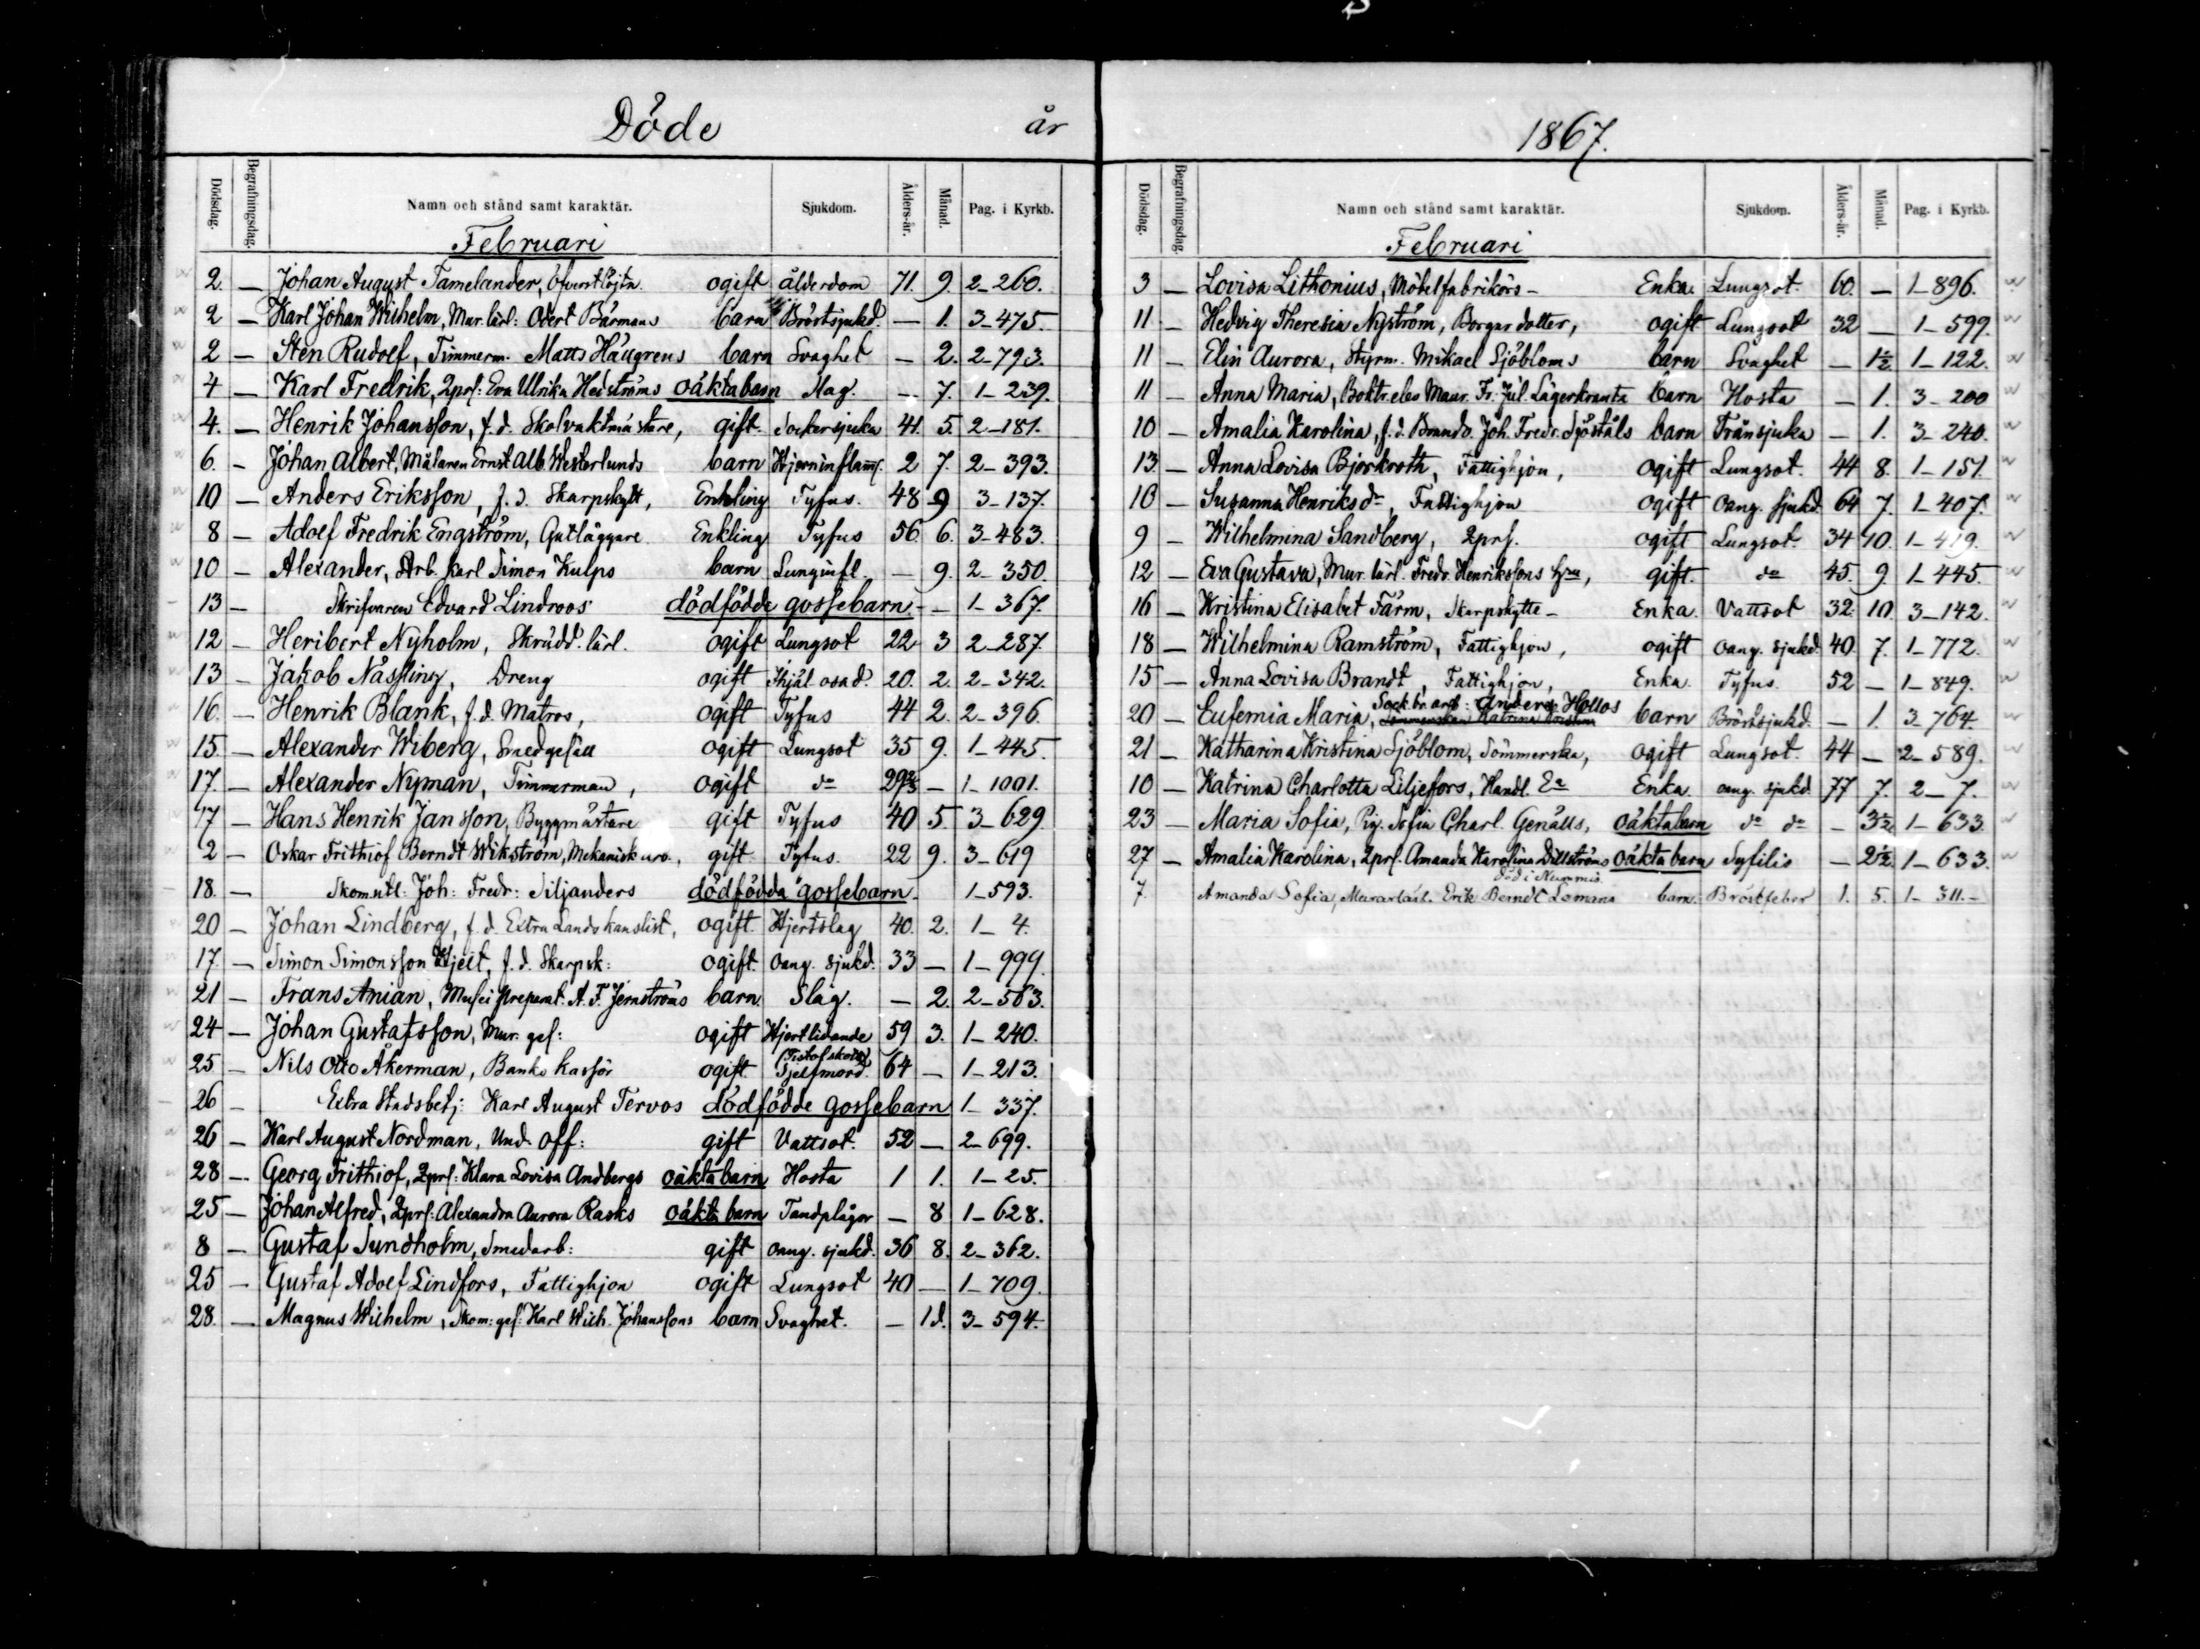 Döde år
Dödsdag. Begrafningsdag. Namn och stånd samt karaktär. Sjukdom. Ålders-år. Månad. Pag. i Kyrkb.
Februari
2. — Johan August Tamelander, Öfverstlöjtn. ogift ålderdom 71. 9. 2–260.
2 — Karl Johan Wilhelm, Mur. lärl: Odert Bärmans barn Bröstsjukd. — 1. 3–475.
2 — Sten Rudolf, Timmerm. Matts Häggrens barn Svaghet — 2. 2–793.
4 — Karl Fredrik, Qprs: Eva Ulrika Hedströms oäkta barn Slag. — 7. 1–239.
4. — Henrik Johansson, f.d. Skolvaktmästare, gift. Sockersjuka 41. 5. 2–181.
6. — Johan Albert, Målaren Ernst Alb. Westerlunds barn Hjerninflamm. 2 7. 2–393.
10 — Anders Eriksson, f.d. Skarpskytt, Enkling Tyfus. 48 9 3–137.
8 — Adolf Fredrik Engström, Gatläggare Enkling Tyfus 56. 6. 3–483.
10 — Alexander, Arb. karl Simon Kulps barn Lunginfl. — 9. 2–350.
13 — Skrifvaren Edvard Lindroos dödfödde gossebarn — — 1–367.
12 — Heribert Nyholm, Skrädd. lärl. ogift Lungsot 22 3 2–287.
13 — Jakob Nässling, Dreng ogift Ihjäl osad. 20. 2. 2–342.
16. — Henrik Blank, f.d. Matros, ogift Tyfus 44 2. 2–396.
15. — Alexander Wiberg, Smedgesäll ogift Lungsot 35 9. 1–445.
17. — Alexander Nyman, Timmerman, ogift do 29 — 1–1001.
17 — Hans Henrik Jansson, Byggmästare gift Tyfus 40 5. 3–629
2 — Oskar Frithiof Berndt Wikström, Mekanisk arb., gift Tyfus. 22 9. 3–619
18. — Skomakl: Joh: Fredr: Siljanders dödfödda gossebarn 1–593.
20 — Johan Lindberg, f.d. Extra Landskanslist, ogift. Hjertslag 40. 2. 1–4.
17. — Simon Simonsson Hjelt, f.d. Skarpsk: ogift. oang. sjukd. 33 — 1–999.
21 — Frans Anian, Musei preparat. A. F. Jernströms barn Slag. — 2. 2–563.
24 — Johan Gustafsson, Mur. ges: ogift Hjertlidande 59 3. 1–240.
25 — Nils Otto Åkerman, Banko kassör ogift (Pistolskott) Sjelfmord. 64 — 1–213.
26 — Extra Stadsbetj: Karl August Tervos dödfödde gossebarn 1–337.
26 — Karl August Nordman, Und. Off: gift Vattsot. 52 — 2–699.
28 — Georg Frithiof, Qprs: Klara Lovisa Andbergs oäkta barn Hosta 1 1. 1–25.
25 — Johan Alfred, Qprs: Alexandra Aurora Rasks oäkta barn Tandplågor — 8 1–628.
8 — Gustaf Sundholm, Smedarb: gift oang. sjukd. 36 8. 2–362.
25 — Gustaf Adolf Lindfors, Fattighjon ogift Lungsot 40 — 1–709.
28. — Magnus Wilhelm, Skom: ges: Karl Wilh. Johanssons barn Svaghet. — 1 d. 3–594.
1867.
Dödsdag. Begrafningsdag. Namn och stånd samt karaktär. Sjukdom. Ålders-år. Månad. Pag. i Kyrkb.
Februari
3 — Lovisa Lithonius, Möbelfabrikörs– Enka. Lungsot. 60. — 1–896.
11 — Hedvig Theresia Nyström, Borgar dotter, ogift Lungsot 32 — 1–599.
11 — Elin Aurora, Styrm. Mikael Sjöbloms barn Svaghet — 1½ 1–122.
11 — Anna Maria, Boktr. elev Maur. Fr. Jul. Lägerkrants barn Hosta — 1. 3–200
10 — Amalia Karolina, f.d. Brandv. Joh. Fredr. Sjöståls barn Trånsjuka — 1. 3–240.
13. — Anna Lovisa Björkroth, Fattighjon, ogift Lungsot. 44 8. 1–151.
10 — Susanna Henriksdr, Fattighjon ogift oang. sjukd. 64 7. 1–407.
9 — Wilhelmina Sandberg, Qprs. ogift Lungsot. 34 10. 1–419.
12 — Eva Gustava, Mur. lärl. Fredr. Henrikssons hru, gift. do 45. 9 1–445.
16 — Kristina Elisabet Färm, Skarpskytte– Enka. Vattsot 32. 10. 3–142.
18 — Wilhelmina Ramström, Fattighjon, ogift oang. sjukd. 40 7. 1–772.
15 — Anna Lovisa Brandt, Fattighjon, Enka. Tyfus. 52 — 1–849.
Sock. br. arb: Anders Hollos
20 — Eufemia Maria, barn Bröstsjukd. — 1. 3–764.
21 — Katharina Kristina Sjöblom, Sömmerska, ogift Lungsot. 44 — 2–589.
10 — Katrina Charlotta Liljefors, Handl. Ea Enka. oang. sjukd. 77 7. 2–7.
23 — Maria Sofia, Pig. Sofia Charl. Genälls, oäkta barn do do — 3½ 1–633.
27 — Amalia Karolina, Qprs: Amanda Karolina Dillströms oäkta barn Syfilis — 2½ 1–633.
död i Nummis.
7. Amanda Sofia, Murarlärl. Erik Berndt Lomans barn. Bröstfeber 1. 5. 1–311.–